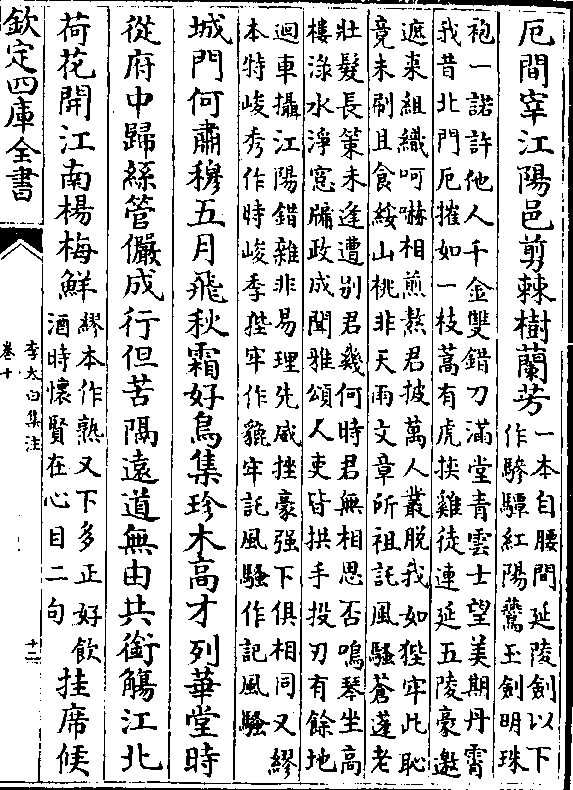 厄間宰江陽邑剪棘樹蘭芳
一本自腰間延陵劍以下
作驂驔紅陽鷰玉劍明珠
袍一諾許他人千金雙錯刀滿堂青雲士望美期丹霄
我昔北門厄摧如一枝蒿有虎挾雞徒連延五陵豪邀
遮來組織呵嚇相煎熬君披萬人叢脫我如狴牢此恥
竟未刷且食綏山桃非天雨文章所祖託風騷蒼蓬老
壯髮長策未逢遭別君幾何時君無相思否鳴琴坐高
樓淥水淨窻牖政成聞雅頌人吏皆拱手投刃有餘地
迴車攝江陽錯雜非易理先威挫豪强下俱相同又繆
本特峻秀作時峻季狴牢作貔牢託風騷作記風騷
城門何肅穆五月飛秋霜好鳥集珍木高才列華堂時
從府中歸絲管儼成行但苦隔遠道無由共銜觴江北
荷花開江南楊梅鮮
繆本作熟又下多正好飲
酒時懷賢在心目二句
挂席候
欽定四庫全書
李太白集注
卷十
十二